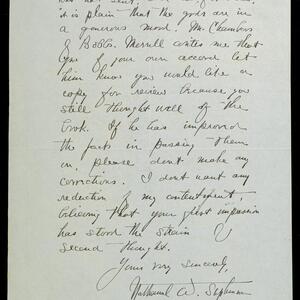 it is plain that the gods are in
a generous mood. Mr. Chambers
of Bobbs-Merrill writes me that
you of your own accord let
him know you would like a
copy for review because you
still thought well of the
book. If he has improved
the facts in passing them
on, please don't make any
corrections. I don't want any
reduction of my contentment,
believing that your first impression
has stood the strain of
second thought.
Yours very sincerely,
Nathaniel W. Stephenson